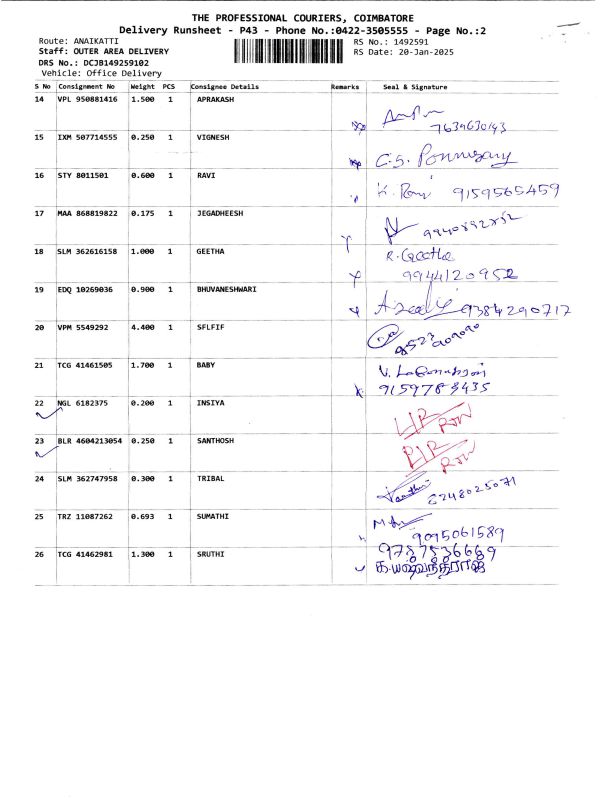 THE PROFESSIONAL COURIERS, COIMBATORE
Delivery Runsheet - P43 - Phone No.:0422-3505555 - Page No.:2
Route: ANAIKATTI RS No.: 1492591
Staff: OUTER AREA DELIVERY RS Date: 20-Jan-2025
DRS No.: DCJB149259102
Vehicle: Office Delivery
S No Consignment No Weight PCS Consignee Details Remarks Seal & Signature
14 VPL 950881416 1.500 1 APRAKASH
7639630143
15 IXM 507714555 0.250 1 VIGNESH
C.S. Ponnusamy
16 STY 8011501 0.600 1 RAVI
K. Ravi 9159565459
17 MAA 868819822 0.175 1 JEGADHEESH
18 SLM 362616158 1.000 1 GEETHA
R. Geetha
9944120952
19 EDQ 10269036 0.900 1 BHUVANESHWARI
9384290717
20 VPM 5549292 4.400 1 SFLFIF
21 TCG 41461505 1.700 1 BABY
9159783435
22 NGL 6182375 0.200 1 INSIYA
23 BLR 4604213054 0.250 1 SANTHOSH
24 SLM 362747958 0.300 1 TRIBAL
25 TRZ 11087262 0.693 1 SUMATHI
9095061589
26 TCG 41462981 1.300 1 SRUTHI
9787536669